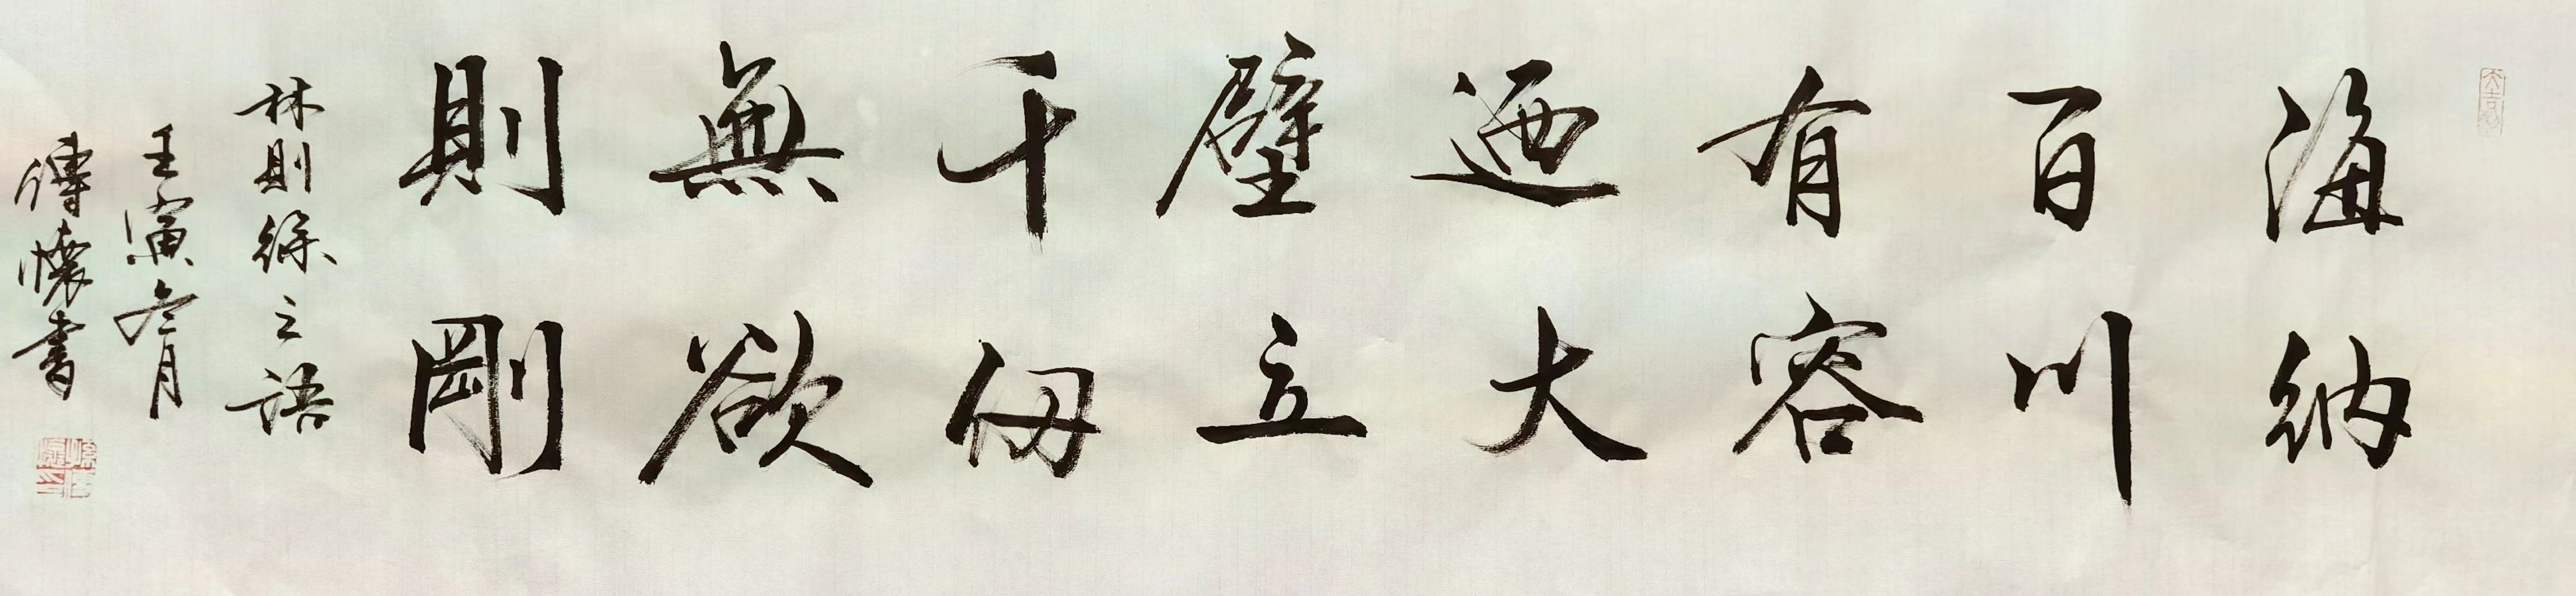 海納
百川
有容
迺大
壁立
千仞
無欲
則剛
林則徐之語
壬寅冬月
傳懷書